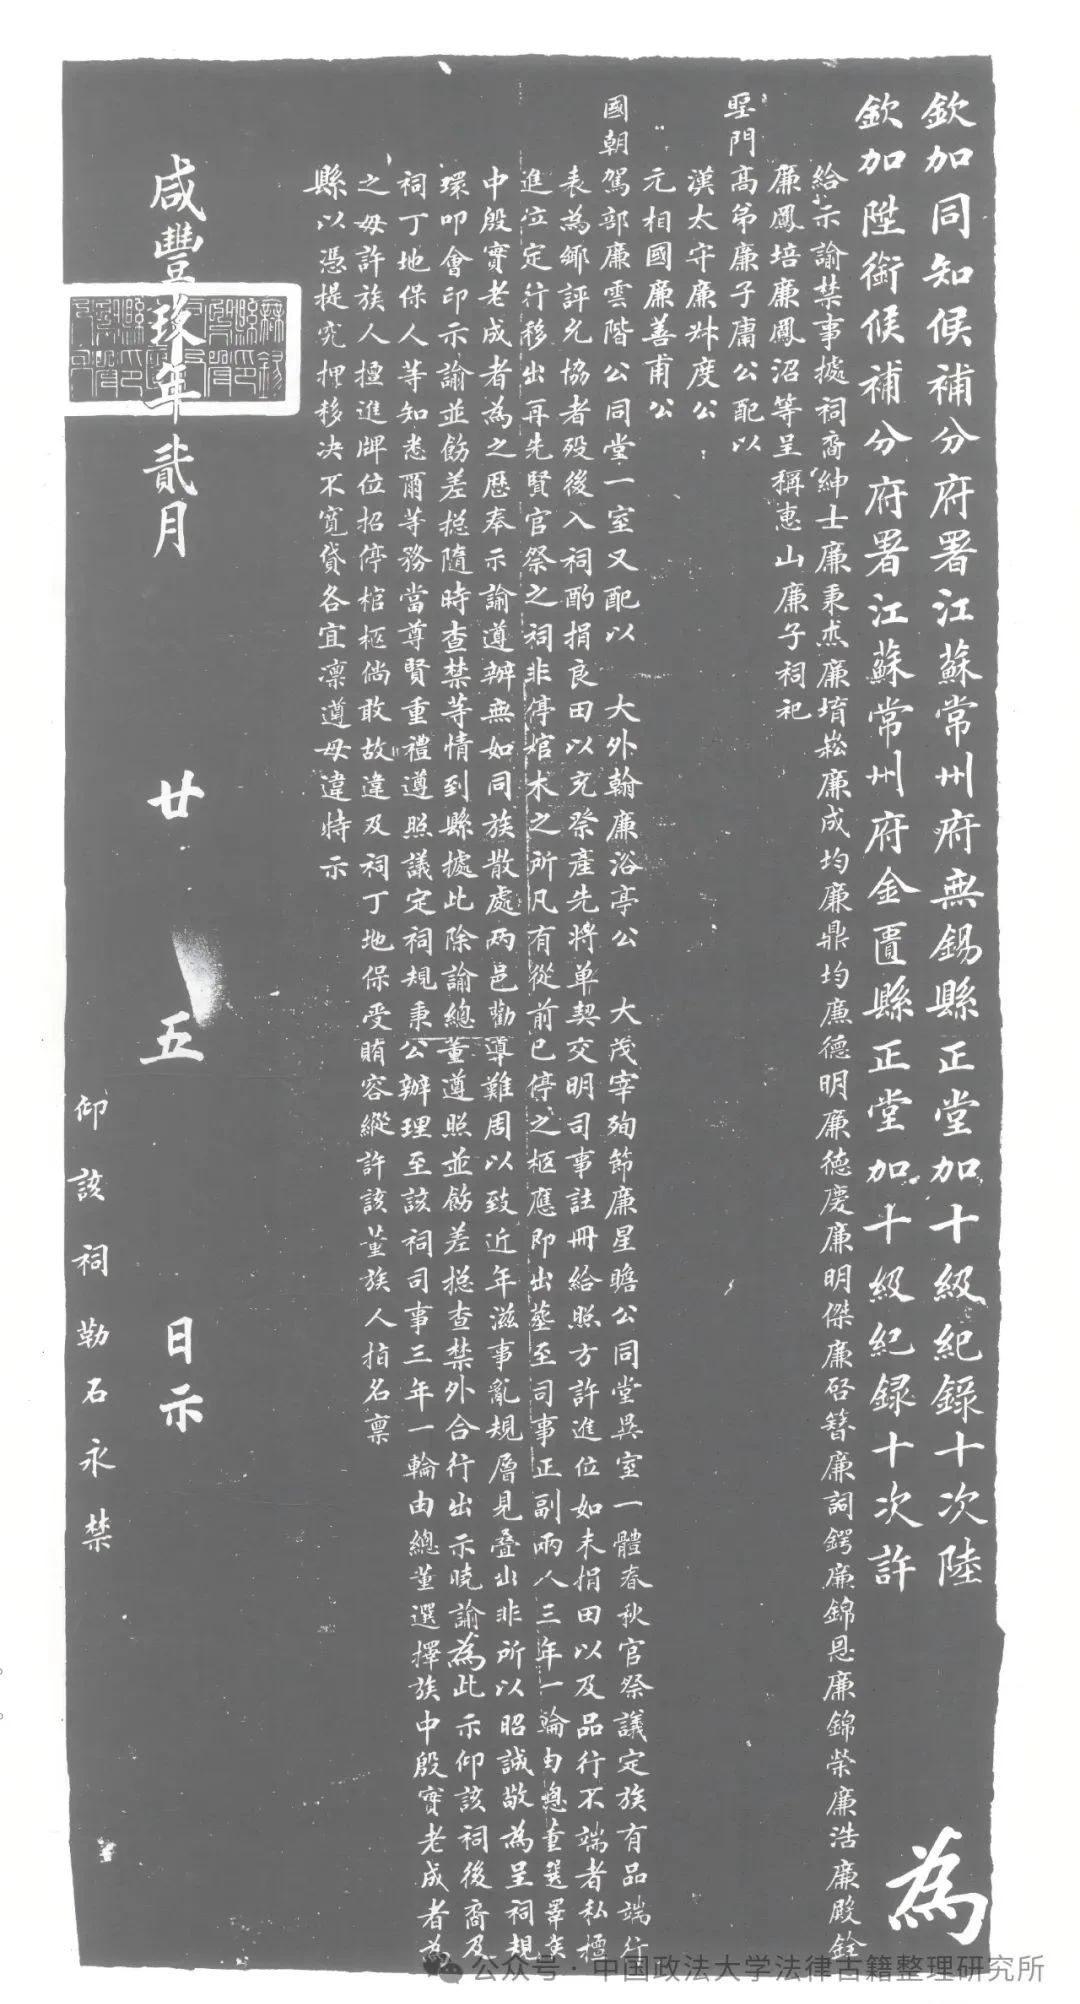 欽加同知候補分府署江蘇常州府無錫縣正堂加十級紀錄十次陸
欽加陞銜候補分府署江蘇常州府金匱縣正堂加十級紀録十次許
為
給示諭禁事據祠裔紳士廉秉杰廉堉崧廉成均廉鼎均廉德明廉德慶廉明傑廉啓簪廉詞鍔廉錦恩廉錦榮廉浩廉殿銓
廉鳳培廉鳳沼等呈稱惠山廉子祠祀
聖門高弟廉子庸公配以
漢太守廉叔度公
元相國廉善甫公
國朝駕部廉雲階公同堂一室又配以 大外翰廉浴亭公 大茂宰殉節廉星瞻公同堂異室一體春秋官祭議定族有品端行
表為鄉評允協者殁後入祠酌捐良田以充祭產先將单契交明司事註冊給照方許進位如未捐田以及品行不端者私擅
進位定行移出再先賢官祭之祠非停棺木之所凡有從前已停之柩應即出塟至司事正副兩人三年一輪由總董選擇族
中殷實老成者為之歷奉示諭遵辦無如同族散處两邑勸導難周以致近年滋事亂規層見叠出非所以昭誠敬為呈祠規
環叩會印示諭並飭差摠隨時查禁等情到縣據此除諭總董遵照並飭差摠查禁外合行出示曉諭為此示仰該祠後裔及
祠丁地保人等知悉爾等務當尊賢重禮遵照議定祠規秉公辦理至該祠司事三年一輪由總董選擇族中殷實老成者為
之毋許族人擅進牌位招停棺柩倘敢故違及祠丁地保受賄容縱許該董族人指名禀
縣以憑提究押移决不寬貸各宜凛遵毋違特示
咸豐玖年貳月 廿五 日示
仰該祠勒石永禁
公众号·中国政法大学法律古籍整理研究所